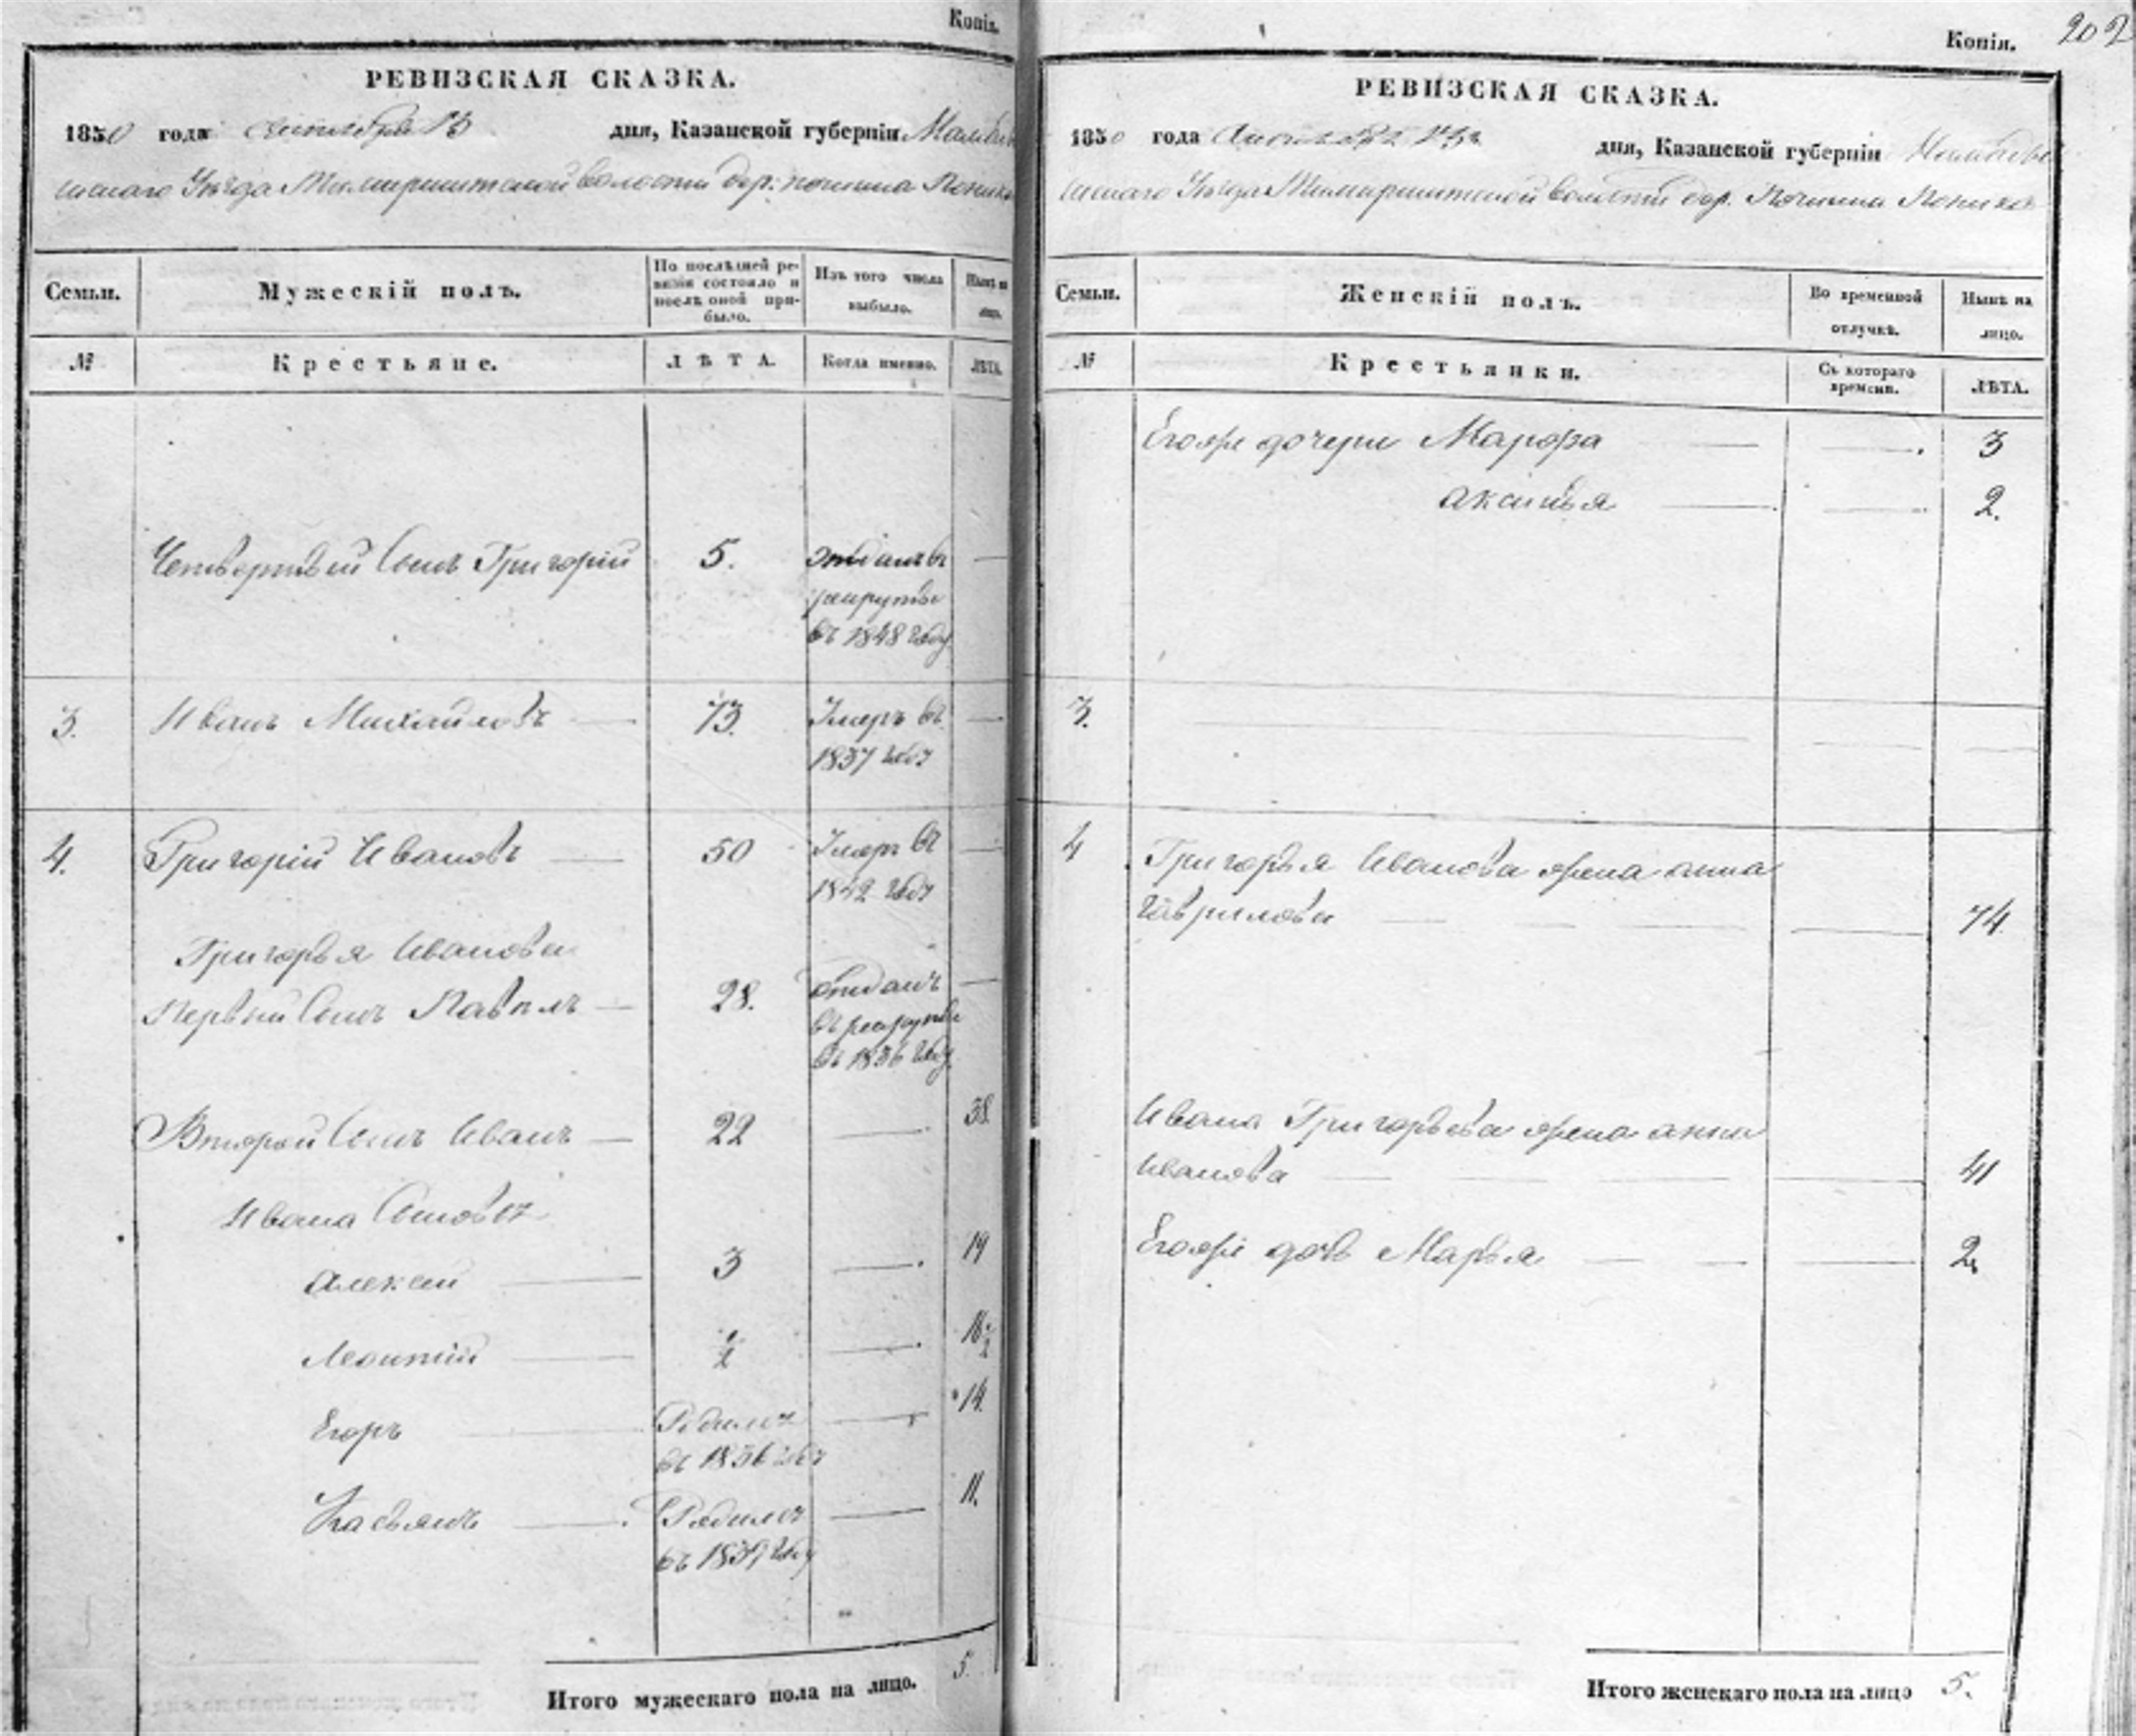 Копія.
РЕВИЗСКАЯ СКАЗКА.
1850 года дня, Казанской губерніи
Уѣзда волости дер: починка
Семьи.
Мужескій полъ.
По послѣдней ре-
визіи состояло и
послѣ оной при-
было.
Изъ того числа
выбыло.
Нынѣ на
лицо.
№
Крестьяне.
ЛѢТА.
Когда именно.
ЛѢТА.
Четвертый Сынъ Григорій 5. Отданъ въ
рекруты
въ 1848 году
3. Иванъ Михайловъ 73. Умеръ въ
1837 году
4. Григорій Ивановъ 50 Умеръ въ
1842 году
Григорья Иванова
Первый Сынъ Павелъ 28. Отданъ
въ рекруты
въ 1836 году
Второй Сынъ Иванъ 22 38
Ивана Сыновья
Алексей 3 19
Леонтій ½ 16½
Егоръ Родился 14.
въ 1836 году
Касьянъ Родился 11.
въ 1839 году
Итого мужескаго пола на лицо. 5.
Копія. 202
РЕВИЗСКАЯ СКАЗКА.
1850 года дня, Казанской губерніи
Уѣзда волости дер. Починка
Семьи.
Женскій полъ.
Во временной
отлучкѣ.
Нынѣ на
лицо.
№
Крестьянки.
Съ котораго
времени.
ЛѢТА.
Егоже дочери Марфа 3
Аксинья 2.
3.
4 Григорья Иванова жена Анна
Гаврилова 74.
Ивана Григорьева жена Анна
Иванова 41
Егоже дочь Марья 2.
Итого женскаго пола на лицо 5.